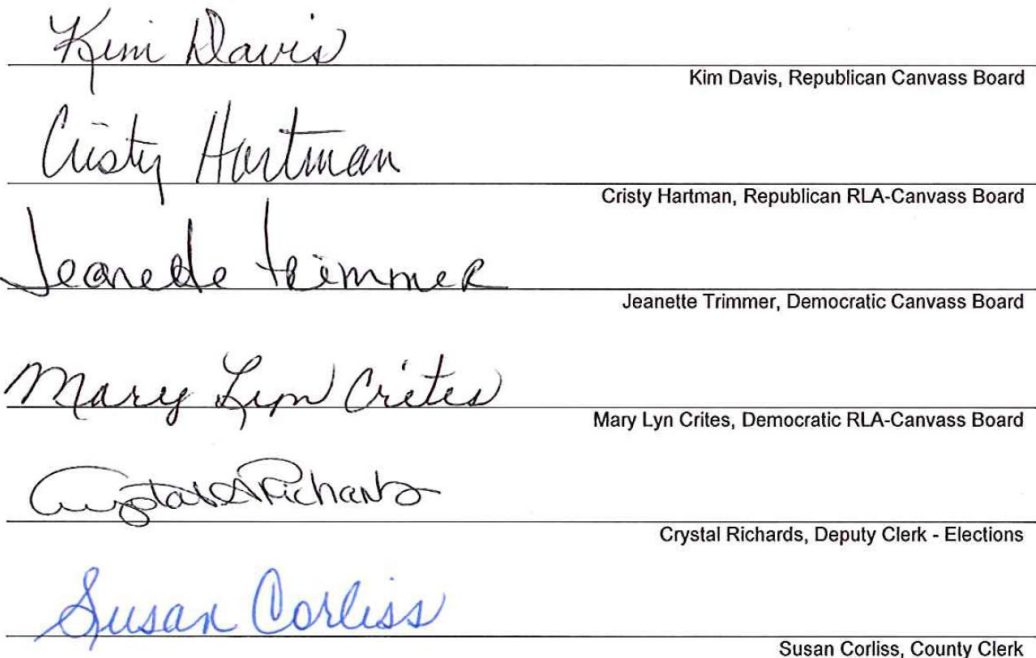 Kim Davis
Kim Davis, Republican Canvass Board
Cristy Hartman
Cristy Hartman, Republican RLA-Canvass Board
Jeanette Trimmer
Jeanette Trimmer, Democratic Canvass Board
Mary Lyn Crites
Mary Lyn Crites, Democratic RLA-Canvass Board
Crystal A Richards
Crystal Richards, Deputy Clerk - Elections
Susan Corliss
Susan Corliss, County Clerk